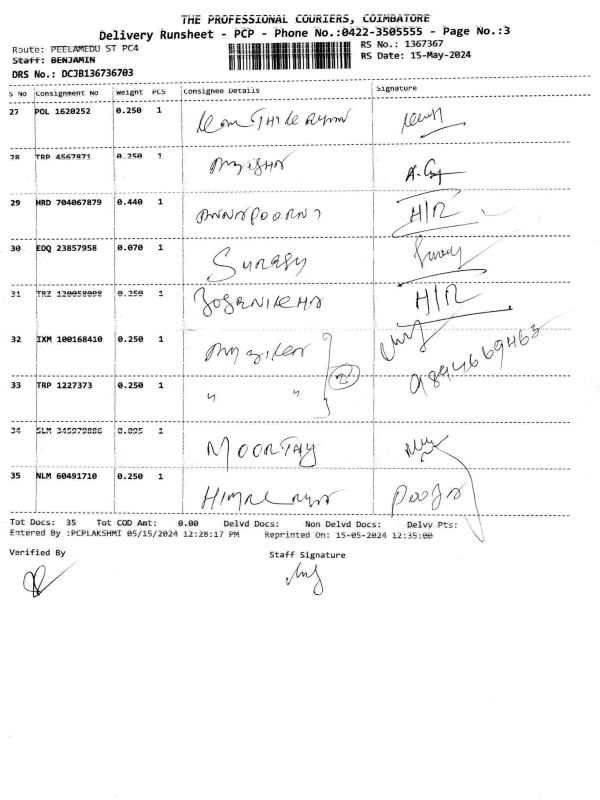 THE PROFESSIONAL COURIERS, COIMBATORE
Delivery Runsheet - PCP - Phone No.:0422-3505555 - Page No.:3
Route: PEELAMEDU ST PC4 RS No.: 1367367
Staff: BENJAMIN RS Date: 15-May-2024
DRS No.: DCJB136736703
S No Consignment No Weight PCS Consignee Details Signature
27 POL 1620252 0.250 1
28 TRP 4567871 0.250 1
29 HRD 704067879 0.440 1 H/R
30 EDQ 23857958 0.070 1
31 TRZ 120058098 0.250 1 H/R
32 IXM 100168410 0.250 1 9894669463
33 TRP 1227373 0.250 1 " "
34 SLM 345979886 0.095 1 MOORTHY
35 NLM 60491710 0.250 1 Pooja
Tot Docs: 35 Tot COD Amt: 0.00 Delvd Docs: Non Delvd Docs: Delvy Pts:
Entered By :PCPLAKSHMI 05/15/2024 12:28:17 PM Reprinted On: 15-05-2024 12:35:00
Verified By Staff Signature